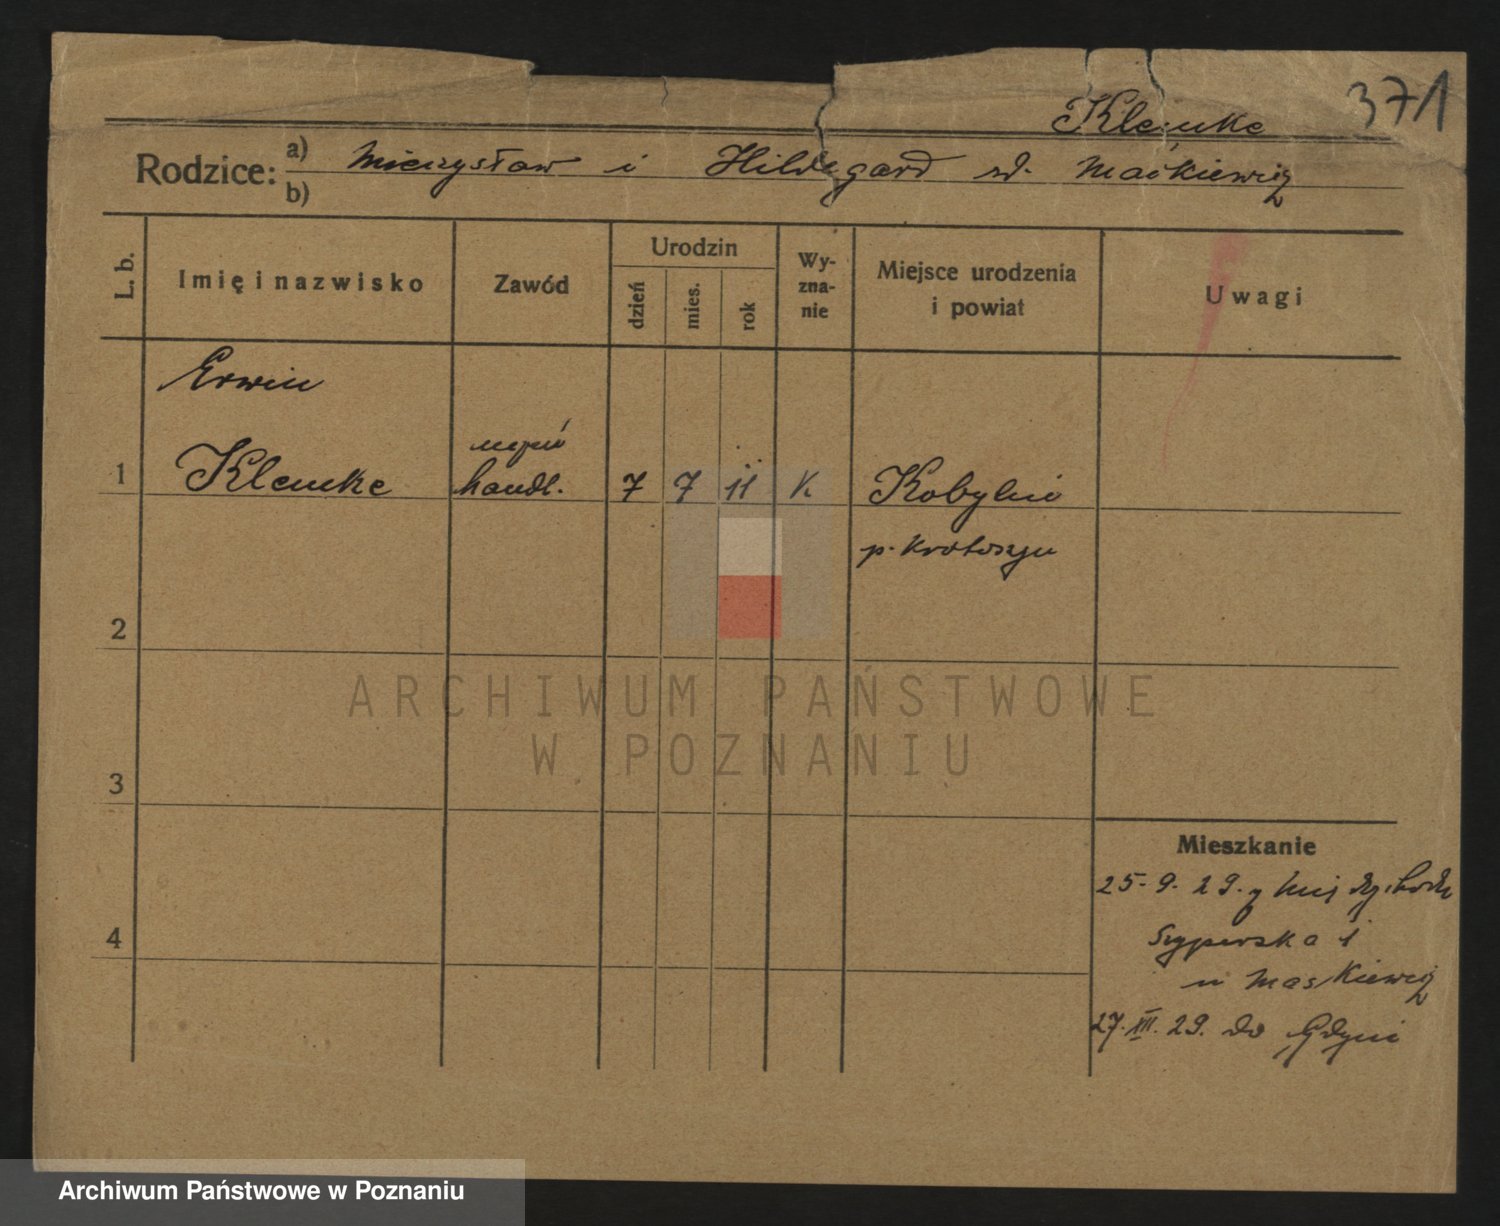 371
Klemke
Rodzice: a) Mieczysław i Hildegard d. Maćkiewicz
b)
L. b.
Imię i nazwisko
Zawód
Urodzin
dzień
mies.
rok
Wy-
zna-
nie
Miejsce urodzenia
i powiat
Uwagi
Erwin
1 Klemke
uczeń
handl.
7 7 11 K Kobylin
p. Krotoszyn
2
3
4
Mieszkanie
25. 9. 29. z
Szyperska 1
u Maskiewicz
27. III. 29. do Gdyni
ARCHIWUM PAŃSTWOWE
W POZNANIU
Archiwum Państwowe w Poznaniu